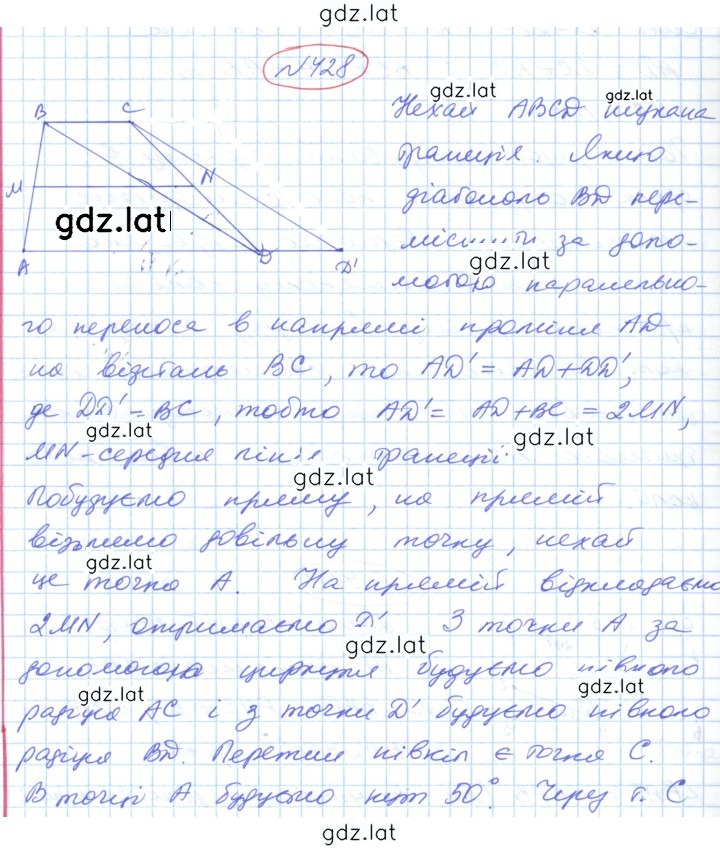 gdz.lat
№428
gdz.lat
gdz.lat
B C
Нехай ABCD шукана
трапеція. Якщо
M N
діагональ BD пере-
gdz.lat
містити за допо-
gdz.lat
A D D'
могою паралельно-
го переноса в напрямі променя AD
на відстань BC, то AD' = AD + DD',
де DD' = BC, тобто AD' = AD + BC = 2MN,
gdz.lat
gdz.lat
MN - середня лінія трапеції.
gdz.lat
Побудуємо пряму, на прямій
візьмемо довільну точку, нехай
gdz.lat
це точка A. На прямій відкладаємо
2MN, отримаємо D' З точки A за
gdz.lat
допомогою циркуля будуємо півколо
gdz.lat
gdz.lat
радіуса AC і з точки D' будуємо півколо
радіуса BD. Перетин півкіл є точка C.
В точці A будуємо кут 50°. Через т. C
gdz.lat